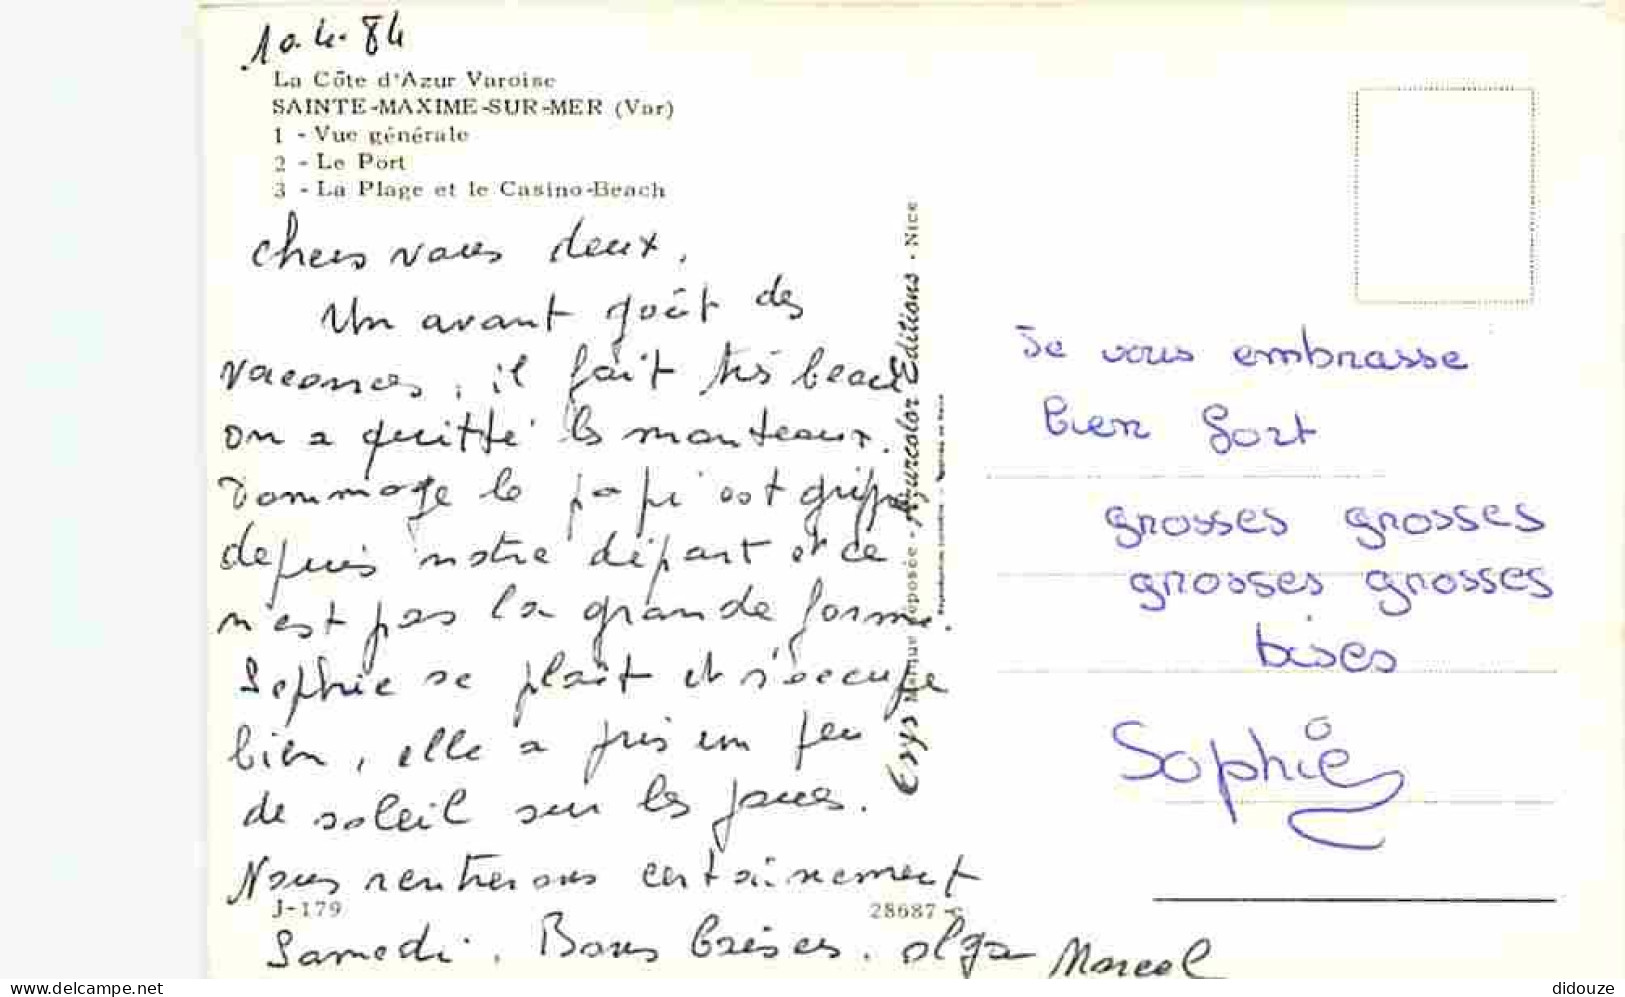 10.4.84
La Côte d'Azur Varoise
SAINTE-MAXIME-SUR-MER (Var)
1 - Vue générale
2 - Le Port
3 - La Plage et le Casino-Beach
Chers vous deux,
Un avant goût des
vacances, il fait très beau
on a quitté les manteaux.
Dommage le papi est grippé
depuis notre départ et ce
n'est pas la grande forme.
Sophie se plaît et s'occupe
bien, elle a pris un peu
de soleil sur les joues.
Nous rentrerons certainement
Samedi. Bons baisers. Olga Marcel
J-179
28687-c
Marque déposée - Azurcolor Editions - Nice
Je vous embrasse
bien fort
grosses grosses
grosses grosses
bises
Sophie
www.delcampe.net
didouze